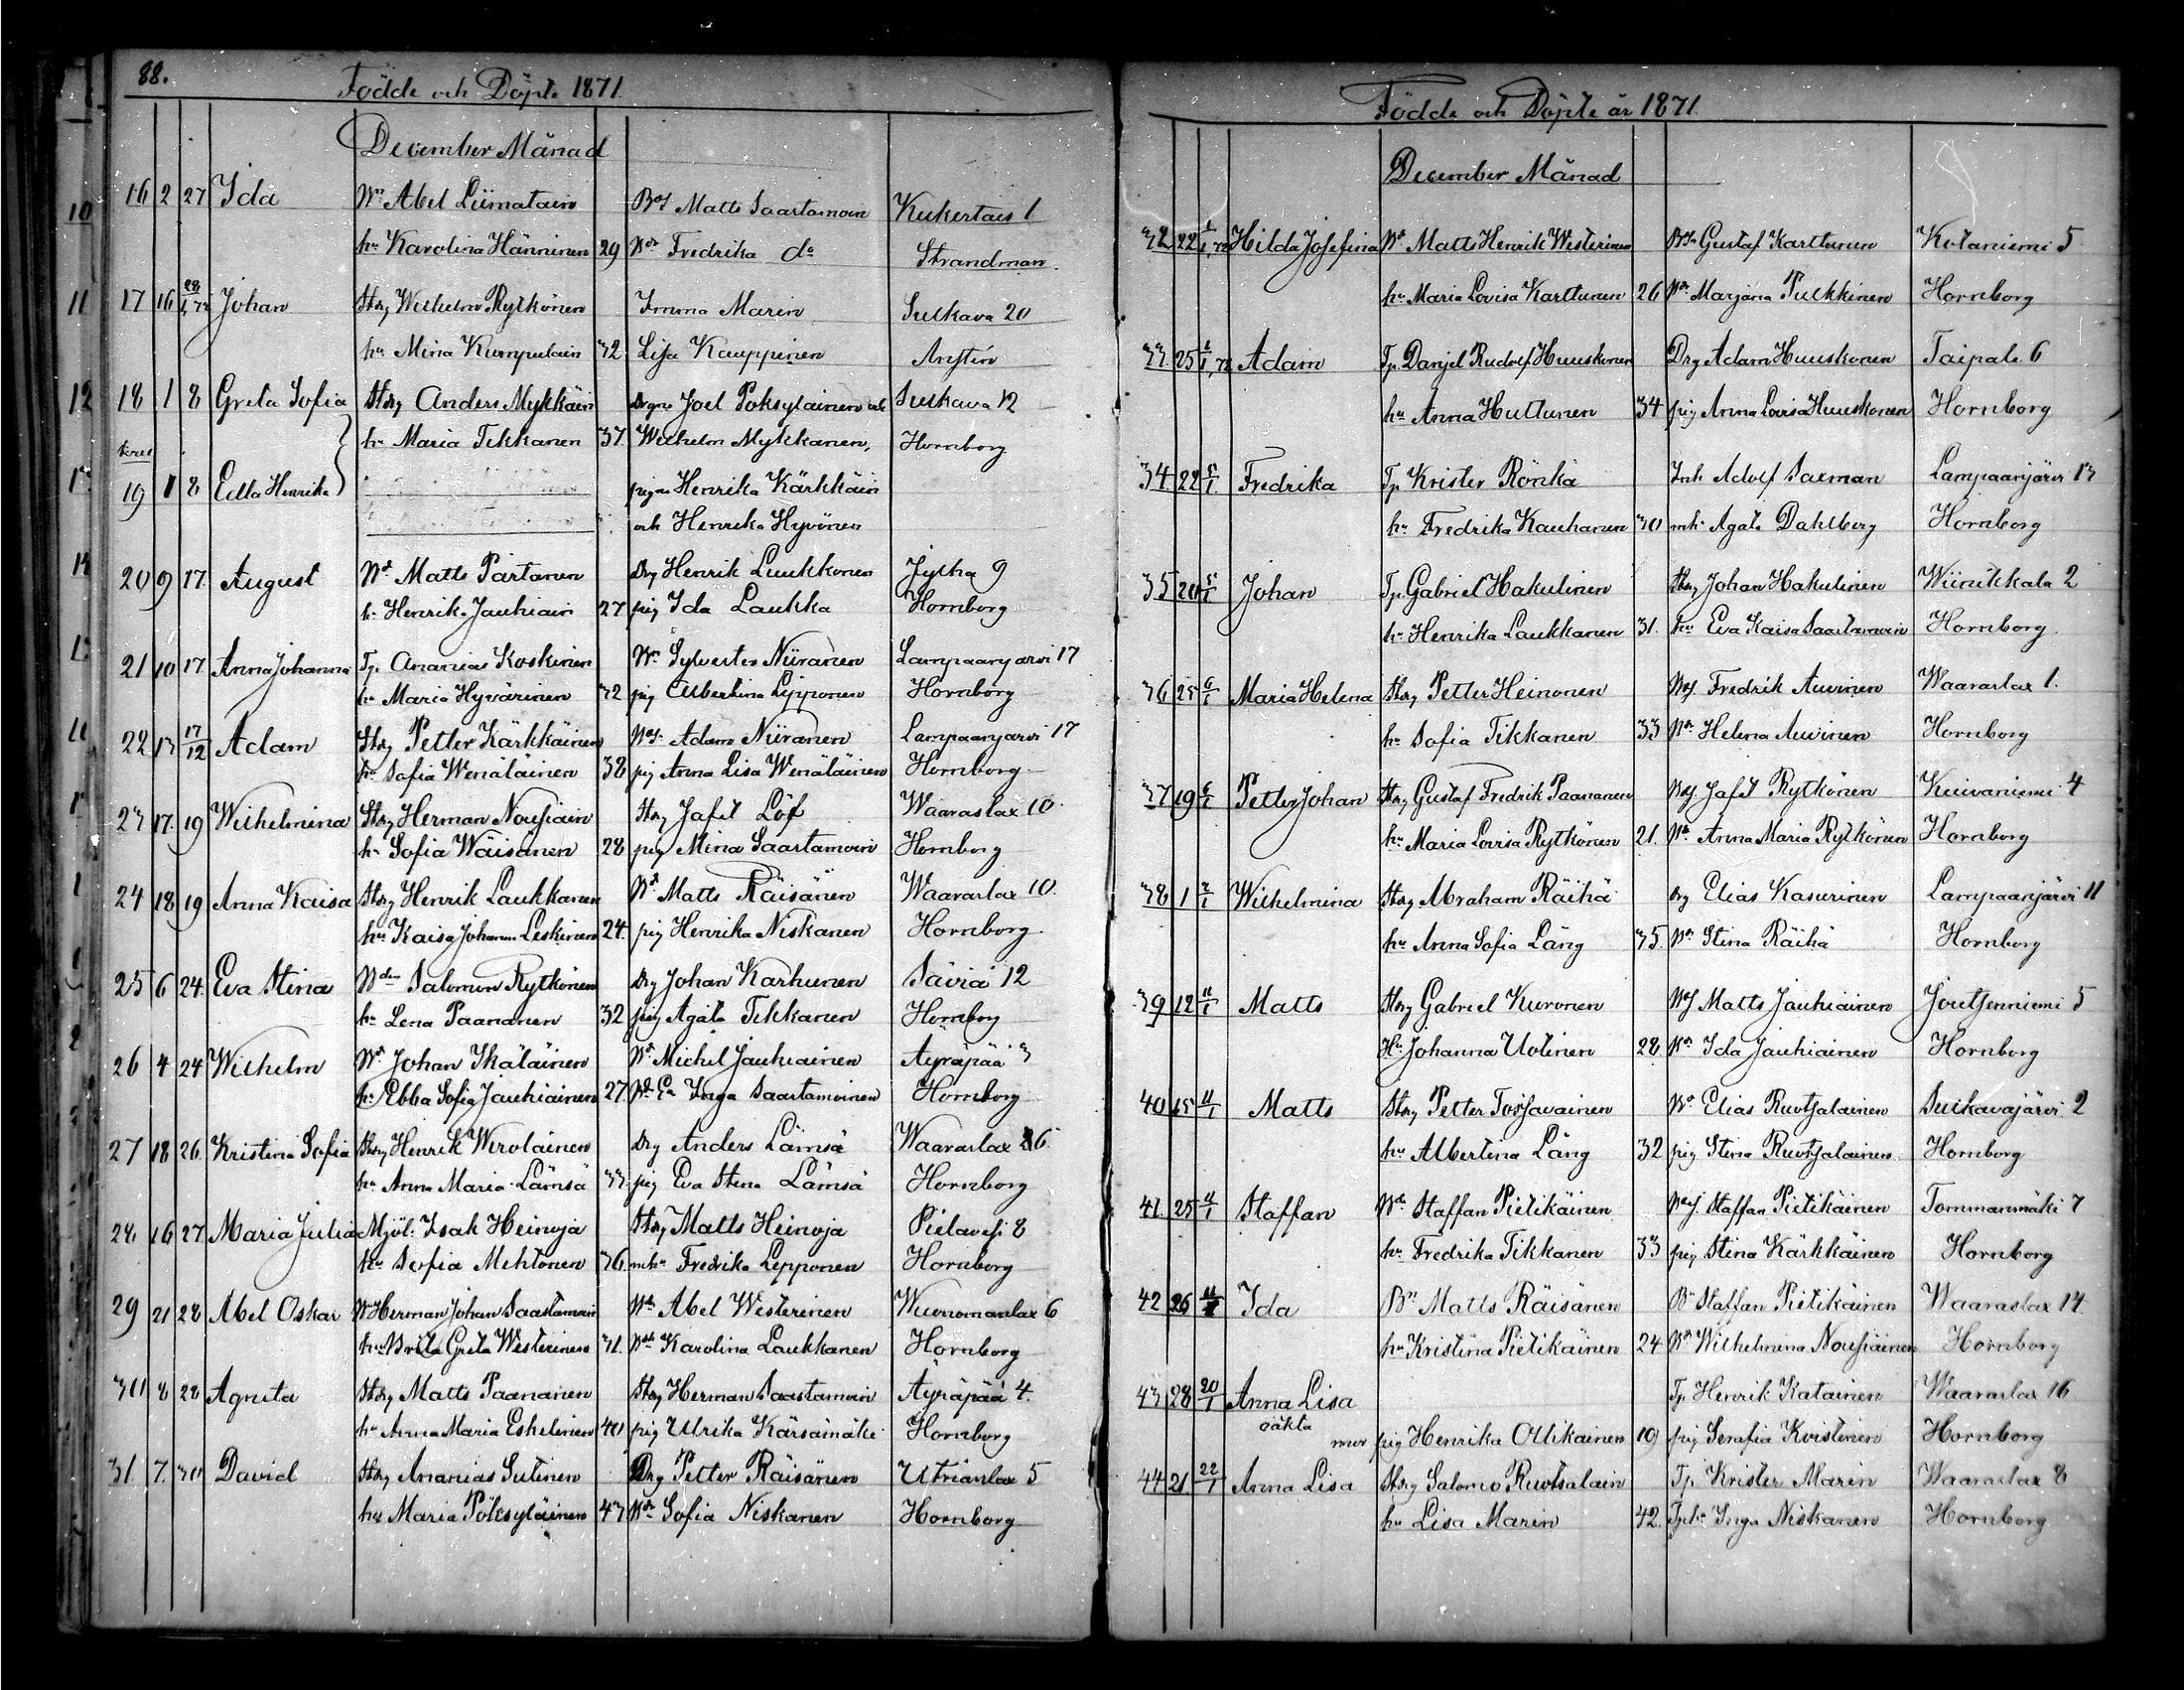 88.
Födde och Döpte 1871.
December Månad
16 2 27 Ida Wn Abel Liimatain Bdf Matts Saastamoin Kukertais 1
hu Karolina Hänninen 29 Wdr Fredrika do Strandman
17 16 28/1,72 Johan Storg Wilhelm Rytkönen Imma Marin Sulkava 20
hu Mina Kumpulain 32 Lisa Kauppinen
18 1 8 Greta Sofia Storg Anders Mykkäin Drgne Joel Poksyläinen och Sulkava 12
hu Maria Tikkanen 37. Wilhelm Mykkänen, Hornborg
19 1 8 Edla Henrika pigne Henrika Kärkkäin
och Henrika Hyvönen
20 9 17. August Wd Matts Partanen Drg Henrik Luukkonen Jylhä 9
h. Henrik. Jauhiain 27 pig Ida Laukka Hornborg
21 10 17 Anna Johanna Tp. Ananias Koskinen Wn Sylvester Niiranen Lampaanjärvi 17
hu Maria Hyvärinen 32 pig Albertina Lipponen Hornborg
22 13 17/12 Adam Storg Petter Kärkkäinen Wdf. Adam Niiranen Lampaanjärvi 17
hu Sofia Wenäläinen 38 pig Anna Lisa Wenäläinen Hornborg
23 17. 19 Wilhelmina Storg Herman Nousiäin Storg Jafet Löf Waaraslax 10.
hu Sofia Wäisänen 28 pig Mina Saastamoin Hornborg
24 18 19 Anna Kaisa Storg Henrik Laukkanen Wd Matts Räisänen Waaraslax 10.
hu Kaisa Johanna Leskinen 24. pig Henrika Niskanen Hornborg
25 6 24. Eva Stina Wdn Salomon Rytkönen Drg Johan Karhunen Säviä 12
hu Lena Paananen 32 pig Agata Tikkanen Hornborg
26 4 24 Wilhelm Wd Johan Ikäläinen Wd Michel Jauhiainen Äyräpää 3
hu Ebba Sofia Jauhiainen 27. Wd Ea Inga Saastamoinen Hornborg
27 18 26. Kristina Sofia Storg Henrik Wirolainen Drg Anders Lämsä Waaraslax 26
hu Anna Maria Lämsä 33 pig Eva Stina Lämsä Hornborg
28. 16 27. Maria Julia Mjöl: Isak Heinoja Storg Matts Heinoja Pielavesi 8
hu Serfia Mehtonen 36. mhu Fredrika Lepponen Hornborg
29 21 28 Abel Oskar W Herman Johan Saastamoin Wd Abel Westerinen Wuonomanlax 6
hu Brita Greta Westerinen 31. Wdh Karolina Laukkanen Hornborg
30 8 28 Agneta Storg Matts Paananen Storg Herman Saastamoin Äyräpää 4.
hu Anna Maria Eskelinen 40 pig Ulrika Kärsämäki Hornborg
31. 7. 30 David Storg Ananias Sutinen Drg Petter Räisänen Utrianlax 5
hu Maria Pöksyläinen 43 Wdr Sofia Niskanen Hornborg
Födde och Döpte år 1871.
December Månad
32 22 1/1,72 Hilda Josefina Wd Matts Henrik Westerinen Bdn Gustaf Karttunen Kotaniemi 5
hu Maria Lovisa Karttunen 26 Wdr Marjana Pulkkinen Hornborg
33. 25 1/1,72 Adam Tp. Danjel Rudolf Huuskonen Drg Adam Huuskonen Taipale 6
hu Anna Huttunen 34 pig Anna Lovisa Huuskonen Hornborg
34 22 5/1. Fredrika Tp Krister Rönkä Inh Adolf Saxman Lampaanjärvi 13
hu Fredrika Kauhanen 30 mh. Agata Dahlberg Hornborg
35 20 5/1 Johan Tp. Gabriel Hakulinen Storg Johan Hakulinen Wiinikkala 2
hu Henrika Laukkanen 31. hu Eva Kaisa Saastamoin Hornborg
36 25 6/1 Maria Helena Storg Petter Heinonen Bdf. Fredrik Auvinen Waaraslax 1.
hu Sofia Tikkanen 33 Wdr Helena Auvinen Hornborg
37 19 6/1 Petter Johan Storg Gustaf Fredrik Paananen Bdf. Jafet Rytkönen Kuivaniemi 4
hu Maria Lovisa Rytkönen 21. Wdr Anna Maria Rytkönen Hornborg
38 1 7/1 Wilhelmina Storg Abraham Räihä drg Elias Kasurinen Lampaanjärvi 11
hu Anna Sofia Läng 35. Wdr Stina Räihä Hornborg
39 12 11/1 Matts Storg Gabriel Kuronen Wdf Matts Jauhiainen Joutsenniemi 5
Hu Johanna Uotinen 28 Wdr Ida Jauhiainen Hornborg
40 15 11/1 Matts Storg Petter Tossavainen Wd Elias Ruotsalainen Sulkavajärvi 2
hu Albertina Läng 32 pig Stina Ruotsalainen Hornborg
41. 25 11/1 Staffan Wd Staffan Pietikäinen Wdf Staffan Pietikäinen Tommanmäki 7
hu Fredrika Tikkanen 33 pig Stina Kärkkäinen Hornborg
42 26 11/1 Ida Bn Matts Räisänen Bn Staffan Pietikäinen Waaraslax 14.
hu Kristina Pietikäinen 24 Wdr Wilhelmina Nousiäinen Hornborg
43 28 20/1 Anna Lisa Tp. Henrik Katainen Waaraslax 16
oäkta mor pig Henrika Ollikainen 19 pig Serafia Kvistinen Hornborg
44 21. 22/1 Anna Lisa Storg Salomo Ruotsalain Tp. Krister Marin Waaraslax 8
hu Lisa Marin 42. Tph. Inga Niskanen Hornborg